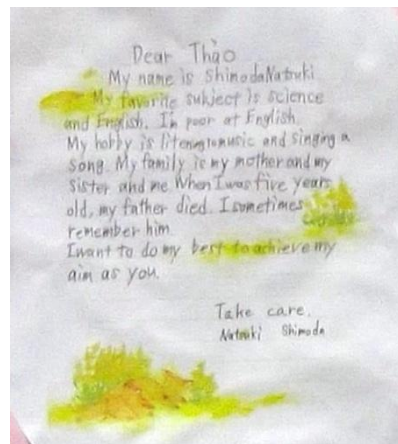 Dear Thảo
My name is Shimoda Natsuki
My favorite subject is science
and English. I'm poor at English.
My hobby is litening to music and singing a
song. My family is my mother and my
sister and me When I was five years
old, my father died. I sometimes
remember him
I want to do my best to achieve my
aim as you.
Take care.
Natsuki Shimoda